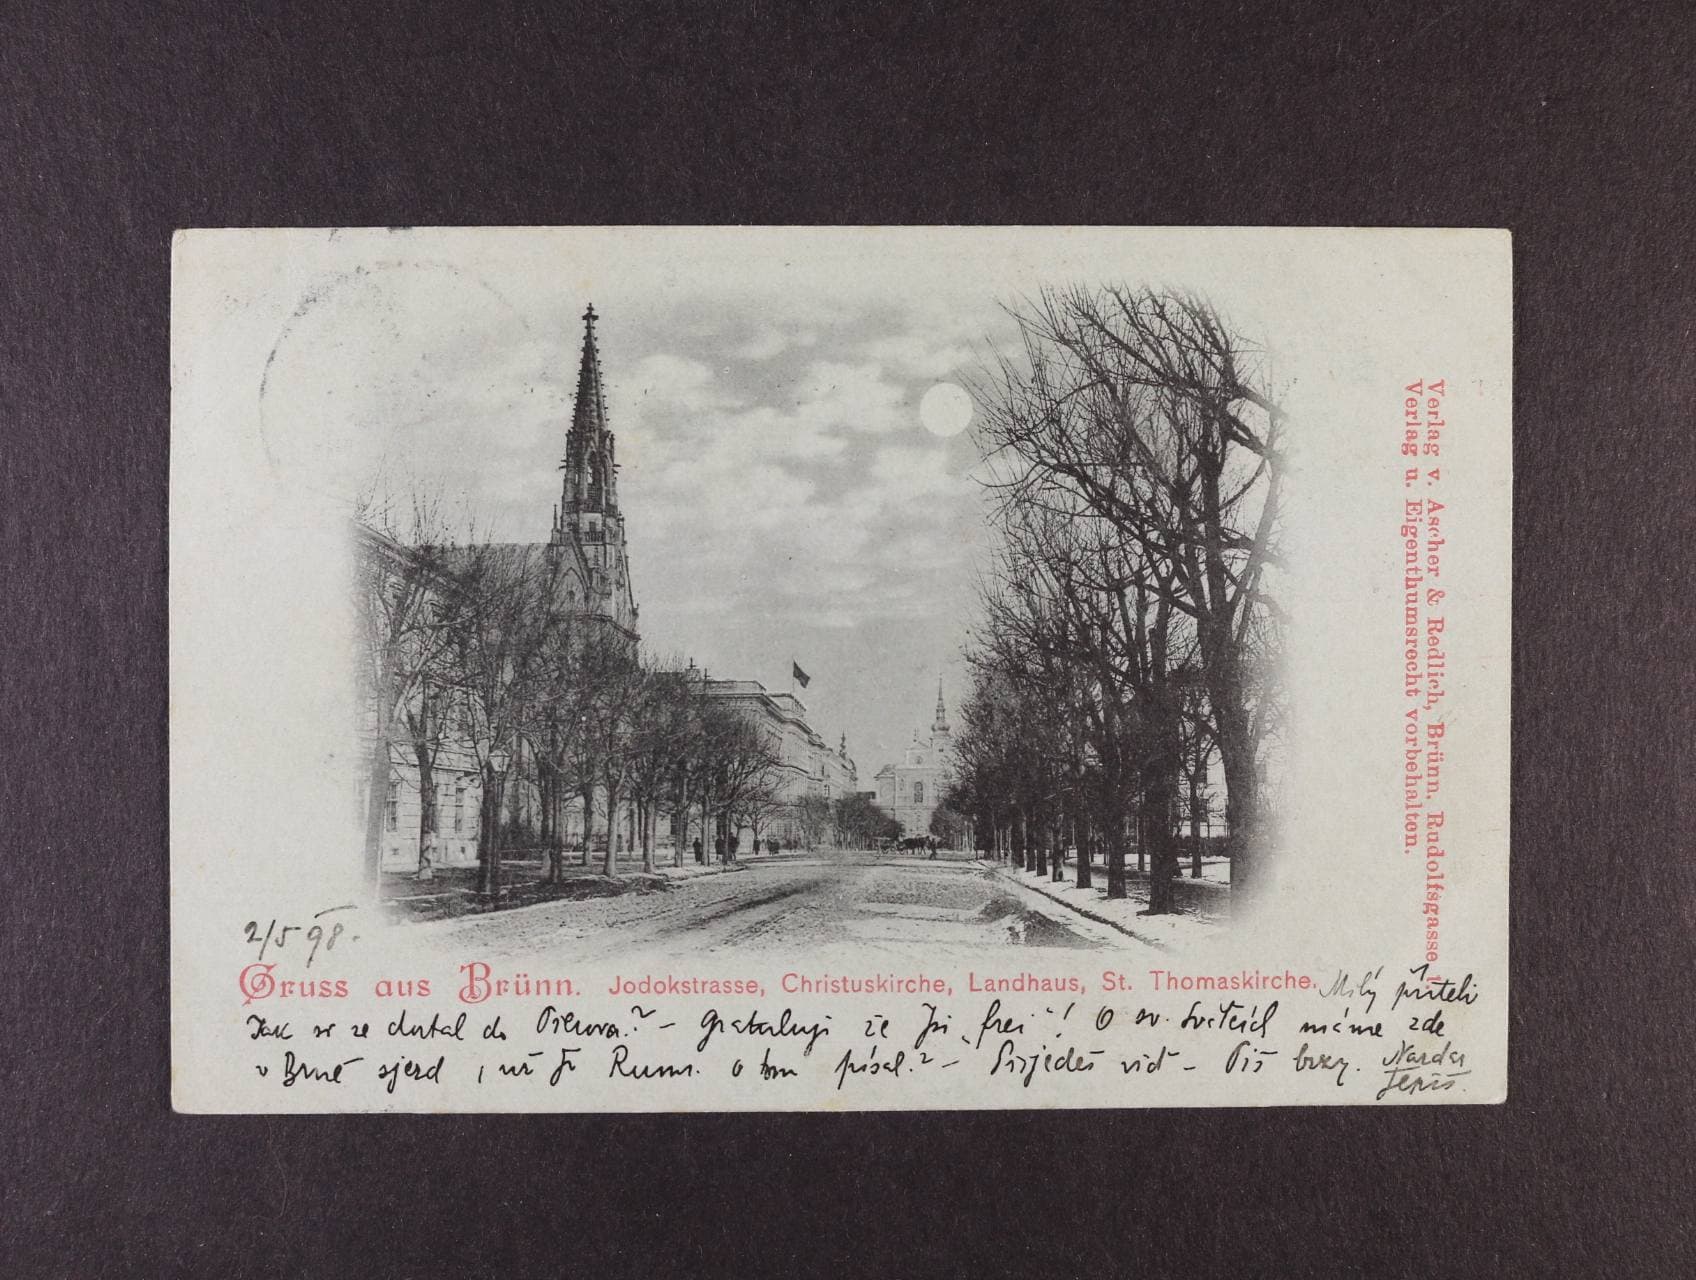 Verlag v. Ascher & Redlich, Brünn, Rudolfsgasse
Verlag u. Eigenthumsrecht vorbehalten.
2/5 98.
Gruss aus Brünn. Jodokstrasse, Christuskirche, Landhaus, St. Thomaskirche.
Milý příteli
Jak se dostal do ? – Gratuluji že jsi „frei“! O sv. máme zde
v Brně sjezd, už Ti o tom písal? – Přijedeš viď – Piš brzy.